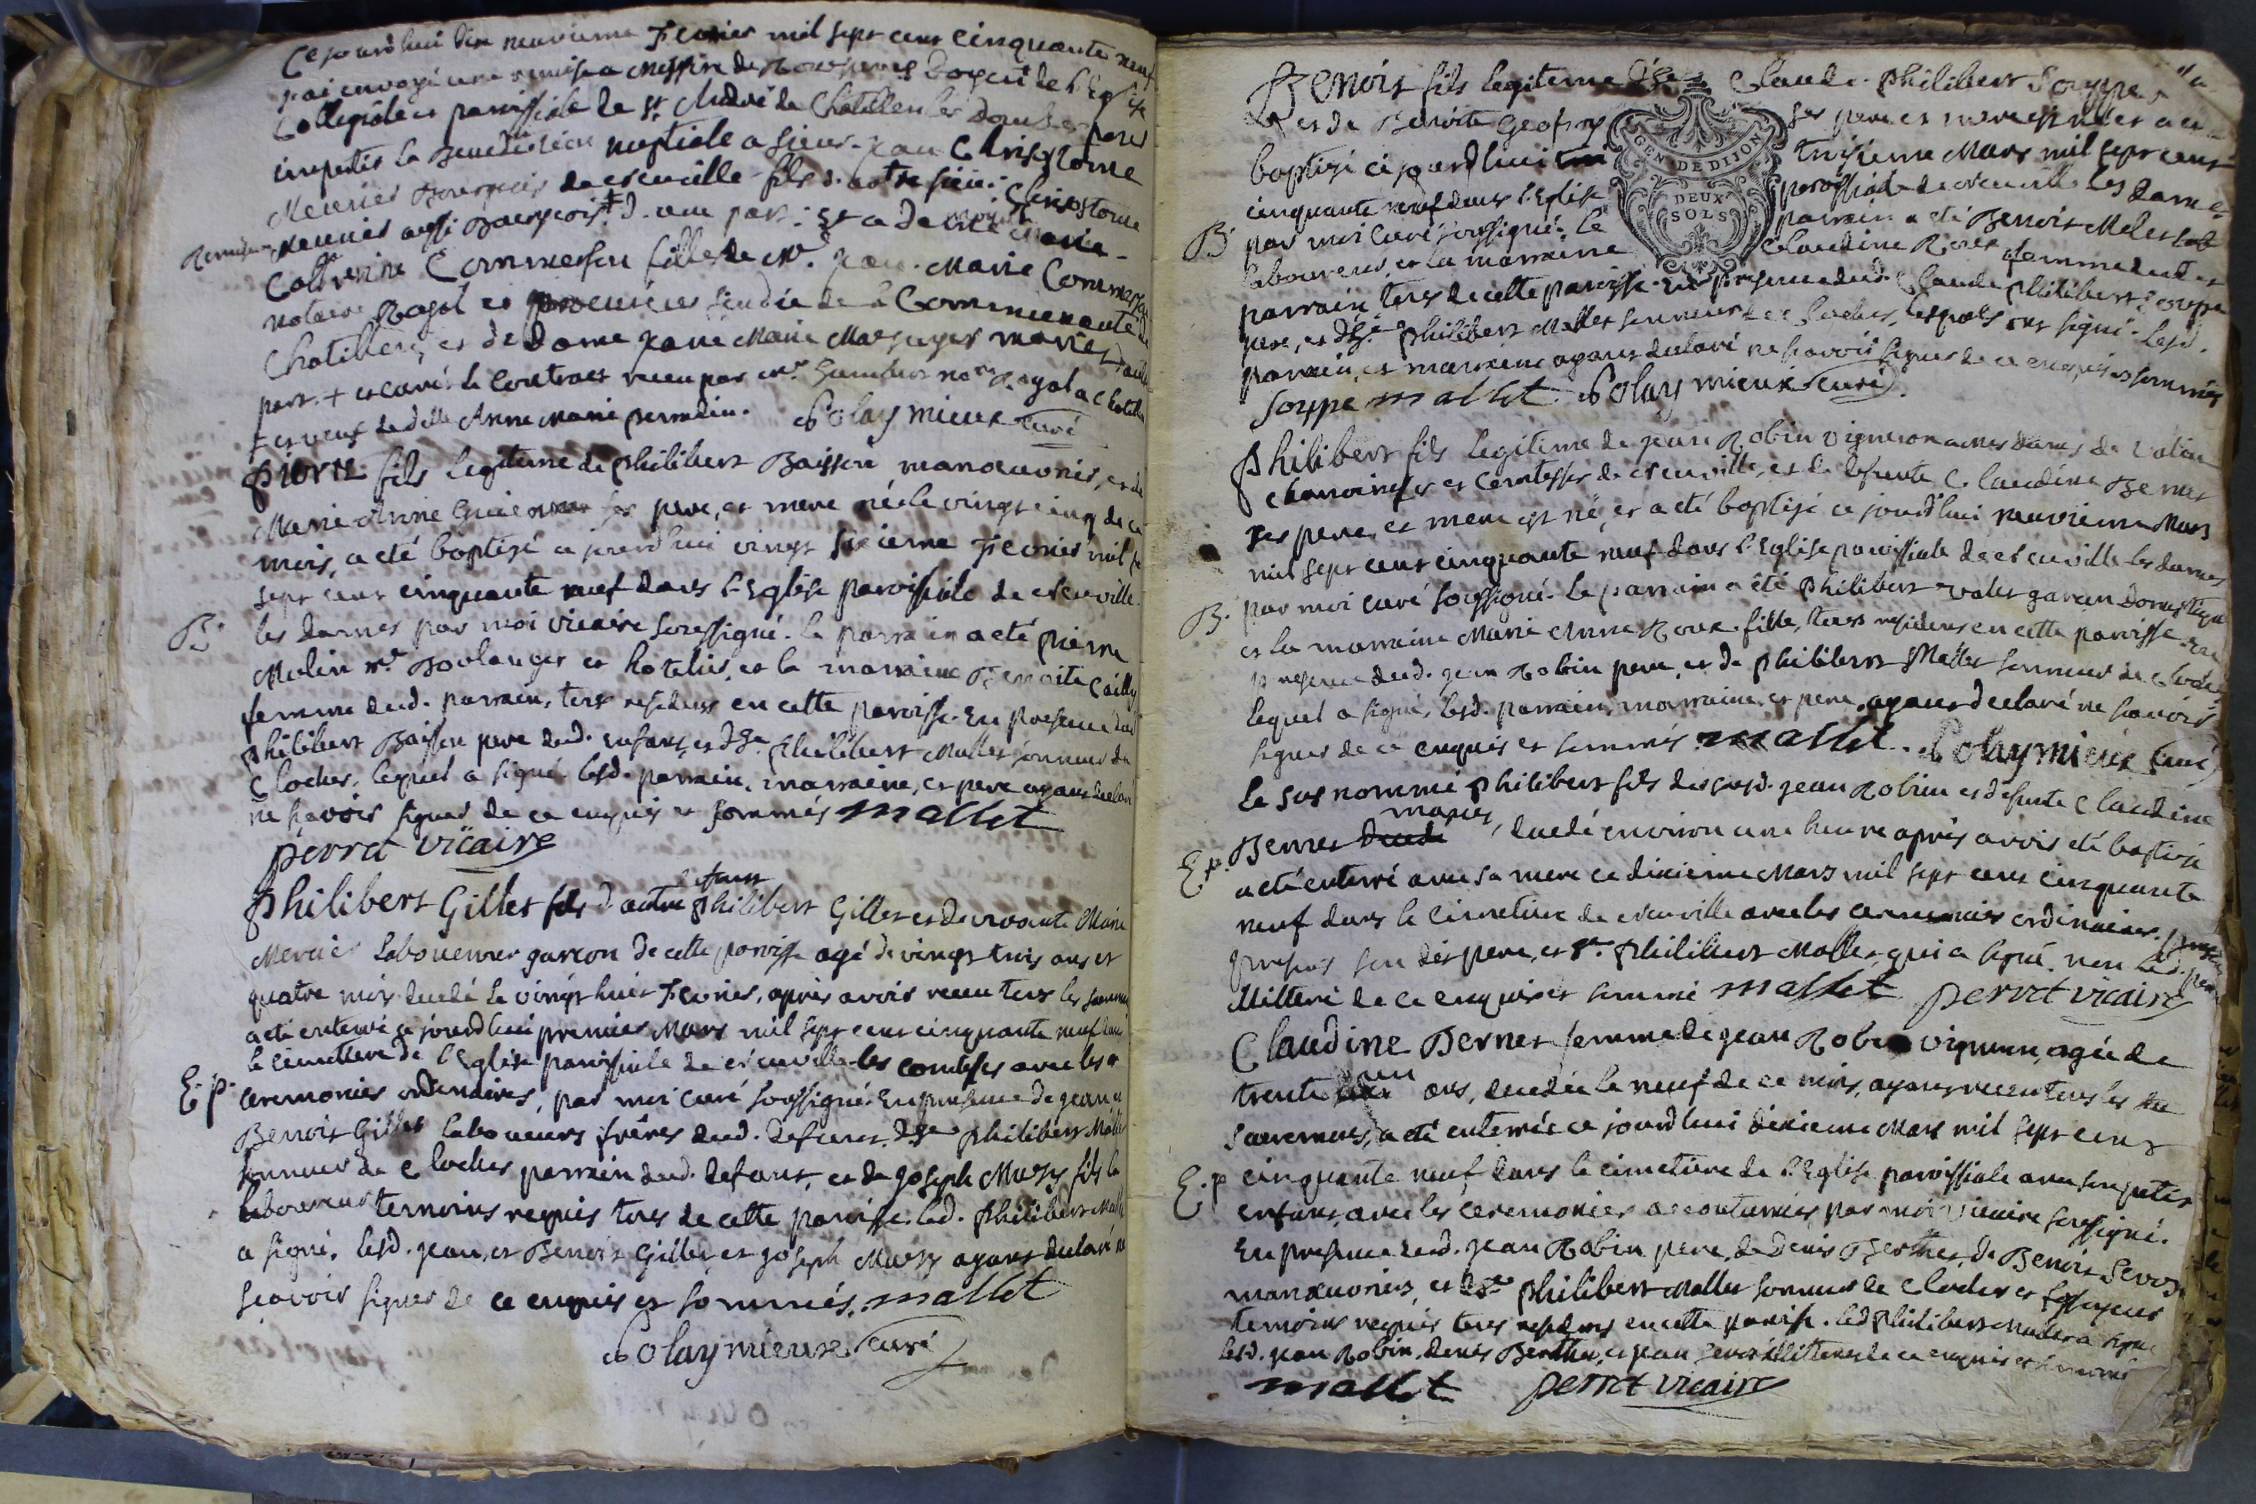 Ce jourd'hui dix neuvieme Fevrier mil sept cent cinquante neuf
j'ai envoyé une remise a Messire de Doyen de l'Eglise
Collegiale et paroissiale de St André de Chatillon les Dombes pour
impartir la Benediction nuptiale a sieur Jean Chrisostome
Meunier Bourgeois de neuville fils d'autre sieur Chrisostome
Remise Meunier aussi Bourgeois + d'une part. Et a Marie
Catherine Commerson fille de Mr. Jean Marie Commerson
notaire Royal et procureur sindic de la Communauté de
Chatillon, et de Dame Jeane Marie Mariés d'autre
part. + et avec le Contract receu par Mr. no.re Royal a Chatillon
+ et veuf de delle Anne Marie perradin. Polaymieux curé
pierre fils legitime de Philibert Buisson manœuvrier, et de
Marie Anne ses pere, et mere né le vingt cinq de ce
mois, a eté baptizé ce jourd'hui vingt sixieme Fevrier mil
sept cent cinquante neuf dans l'Eglise paroissiale de neuville
B. les dames par moi vicaire soussigné. le parrain a eté pierre
Molin Mr. Boulanger et hotelier, et la marraine Benoite Cailly
femme dud. parrain, tous residens en cette paroisse. En presence dud
Philibert Buisson pere dud. enfant, et d'h.te Philibert Mallet sonneur de
Cloches, lequel a signé. lesd. parrain, marraine, et pere ayant declaré
ne sçavoir signer de ce enquis et sommés mallet
perret vicaire
defunt
Philibert Gillet fils d'autre Philibert Gillet et de vivante Marie
Mercier Laboureur garcon de cette paroisse agé de vingt trois ans et
quatre mois decedé le vingt huit Fevrier, après avoir receu tous les sacremens
a eté enterré ce jourd'hui premier Mars mil sept cent cinquante neuf dans
le cimetiere de l'Eglise paroissiale de neuville les comtesses avec les
E. p. ceremonies ordinaires, par moi curé soussigné. En presence de jean et
Benoit Gillet laboureurs freres dud. defunt, d'h.te philibert Mallet
sonneur de cloches parrain dud. defunt, et de joseph fils
laboureur temoins requis tous de cette paroisse. led. philibert Mallet
a signé, lesd. jean, et Benoit Gillet, et joseph ayant declaré ne
sçavoir signer de ce enquis et sommés. mallet
Polaymieux curé
Benoit fils legitime d'h.te Claude Philibert Souppe
et de Benoite Geofroy ses pere et mere est né et a eté
baptizé ce jourd'hui troisieme Mars mil sept cent
GEN DE DIJON
DEUX
SOLS
cinquante neuf dans l'Eglise paroissiale de neuville les Dames
B. par moi curé soussigné. le parrain a eté Benoit
laboureur, et la marraine Claudine Roux femme dud.
parrain tous de cette paroisse. En presence dud. Claude Philibert Souppe
pere, et d'h.te philibert Mallet sonneur de Cloches, lesquels ont signé. lesd.
parrain, et marraine ayant declaré ne sçavoir signer de ce enquis et sommés
Souppe mallet Polaymieux curé
Philibert fils legitime de jean Robin vigneron a mes Dames de
chanoinesses et Comtesses de neuville, et de defunte Claudine Bernet
ses pere, et mere est né, et a eté baptizé ce jourd'hui neuvieme Mars
mil sept cent cinquante neuf dans l'Eglise paroissiale de neuville les dames
B. par moi curé soussigné. le parrain a été philibert valet garcon Domestique
et la marraine Marie Anne Roux fille, tous residens en cette paroisse. En
presence dud. jean Robin pere, et de philibert Mallet sonneur de cloches
lequel a signé, lesd. parrain, marraine, et pere, ayant declaré ne sçavoir
signer de ce enquis et sommés mallet. Polaymieux curé
Le sus nommé Philibert fils des susd. jean Robin et defunte Claudine
mariés
E. p. Bernet, decedé environ une heure après avoir eté baptizé
a eté enterré avec sa mere ce dixieme Mars mil sept cent cinquante
neuf dans le cimetiere de neuville avec les ceremonies ordinaires
presens son dit pere, et Sr. Philibert Mallet qui a signé, non led. pere
illitteré de ce enquis et sommé mallet perret vicaire
Claudine Bernet femme de jean Robin vigneron, agée de
trente un ans, decedée le neuf de ce mois, ayant receu tous les
sacremens, a eté enterrée ce jourd'hui dixieme Mars mil sept cent
E. p cinquante neuf dans le cimetiere de l'Eglise paroissiale avec son petit
enfant, avec les ceremonies accoutumées par moi vicaire soussigné.
En presence dud. jean Robin pere, de Denis Berthet, de Benoit
manœuvriers, et d'h.te philibert Mallet sonneur de cloches et fossoyeur
temoins requis tous residens en cette paroisse. led philibert Mallet a signé
lesd. jean Robin, denis Berthet, et jean illitterés de ce enquis et sommés
mallet perret vicaire